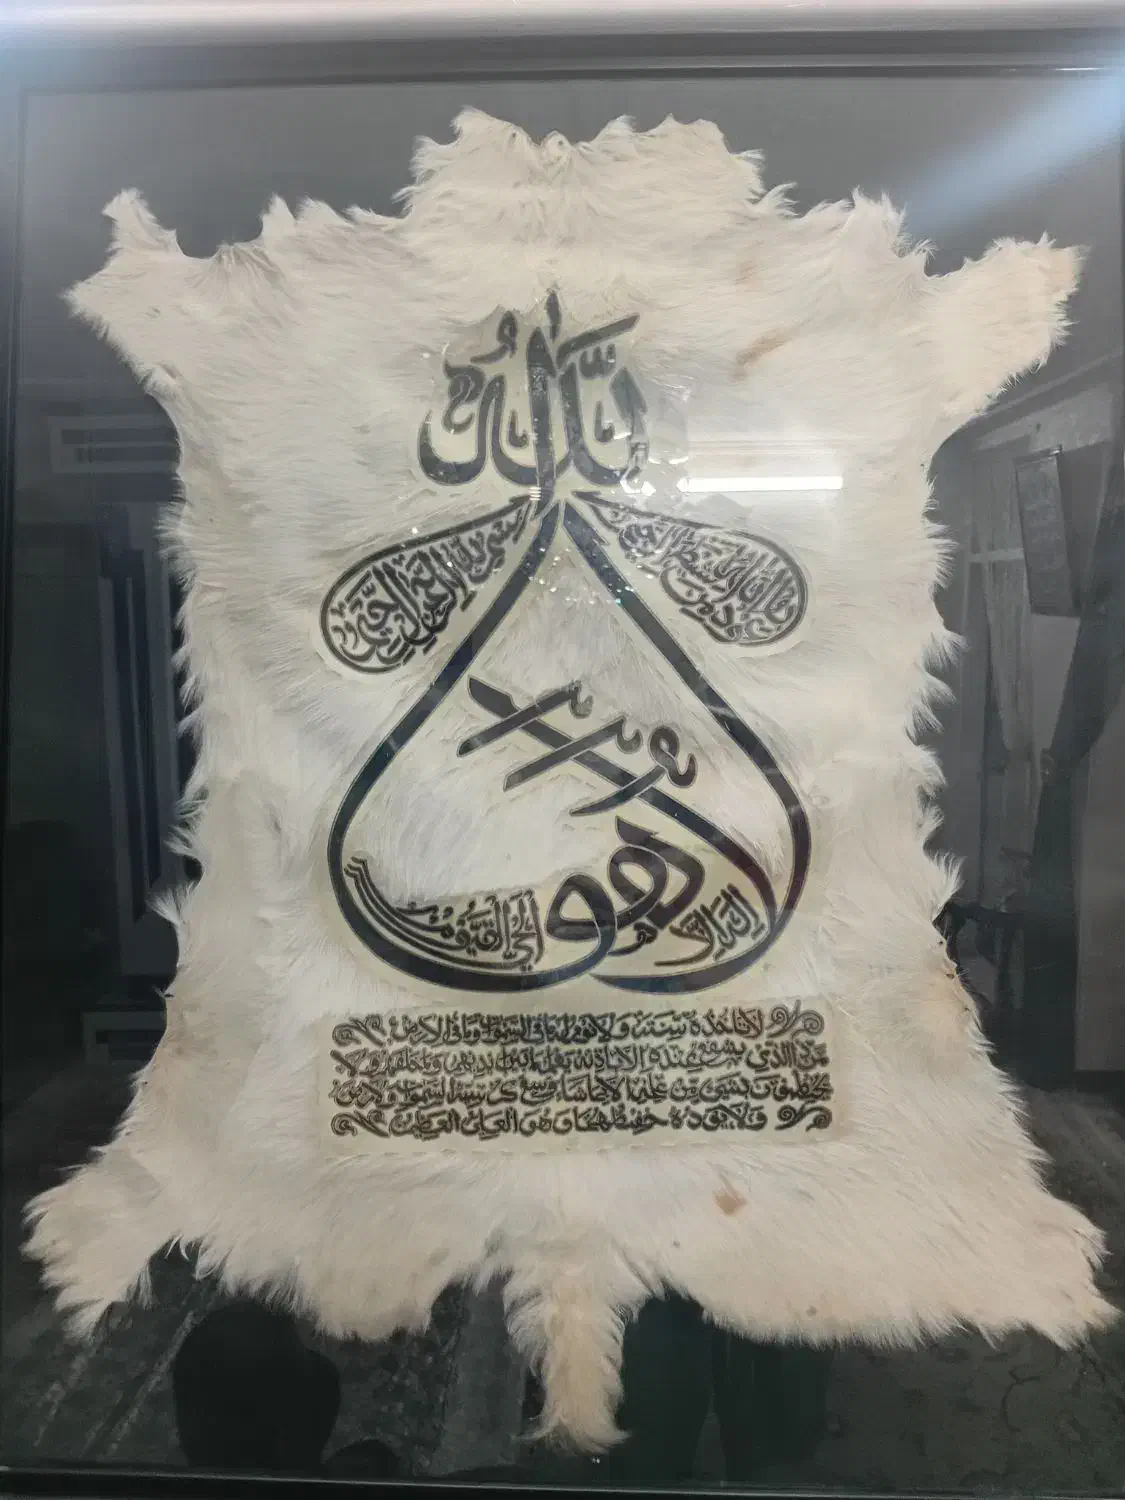 الله
بسم الله الرحمن الرحيم
الله لا
إله إلا هو الحي القيوم
لا تأخذه سنة ولا نوم له ما في السموات وما في الأرض
من الذي يشفع عنده إلا بإذنه يعلم ما بين أيديهم وما خلفهم ولا
يحيطون بشيء من علمه إلا بما شاء وسع كرسيه السموات والأرض
ولا يؤده حفظهما وهو العلي العظيم